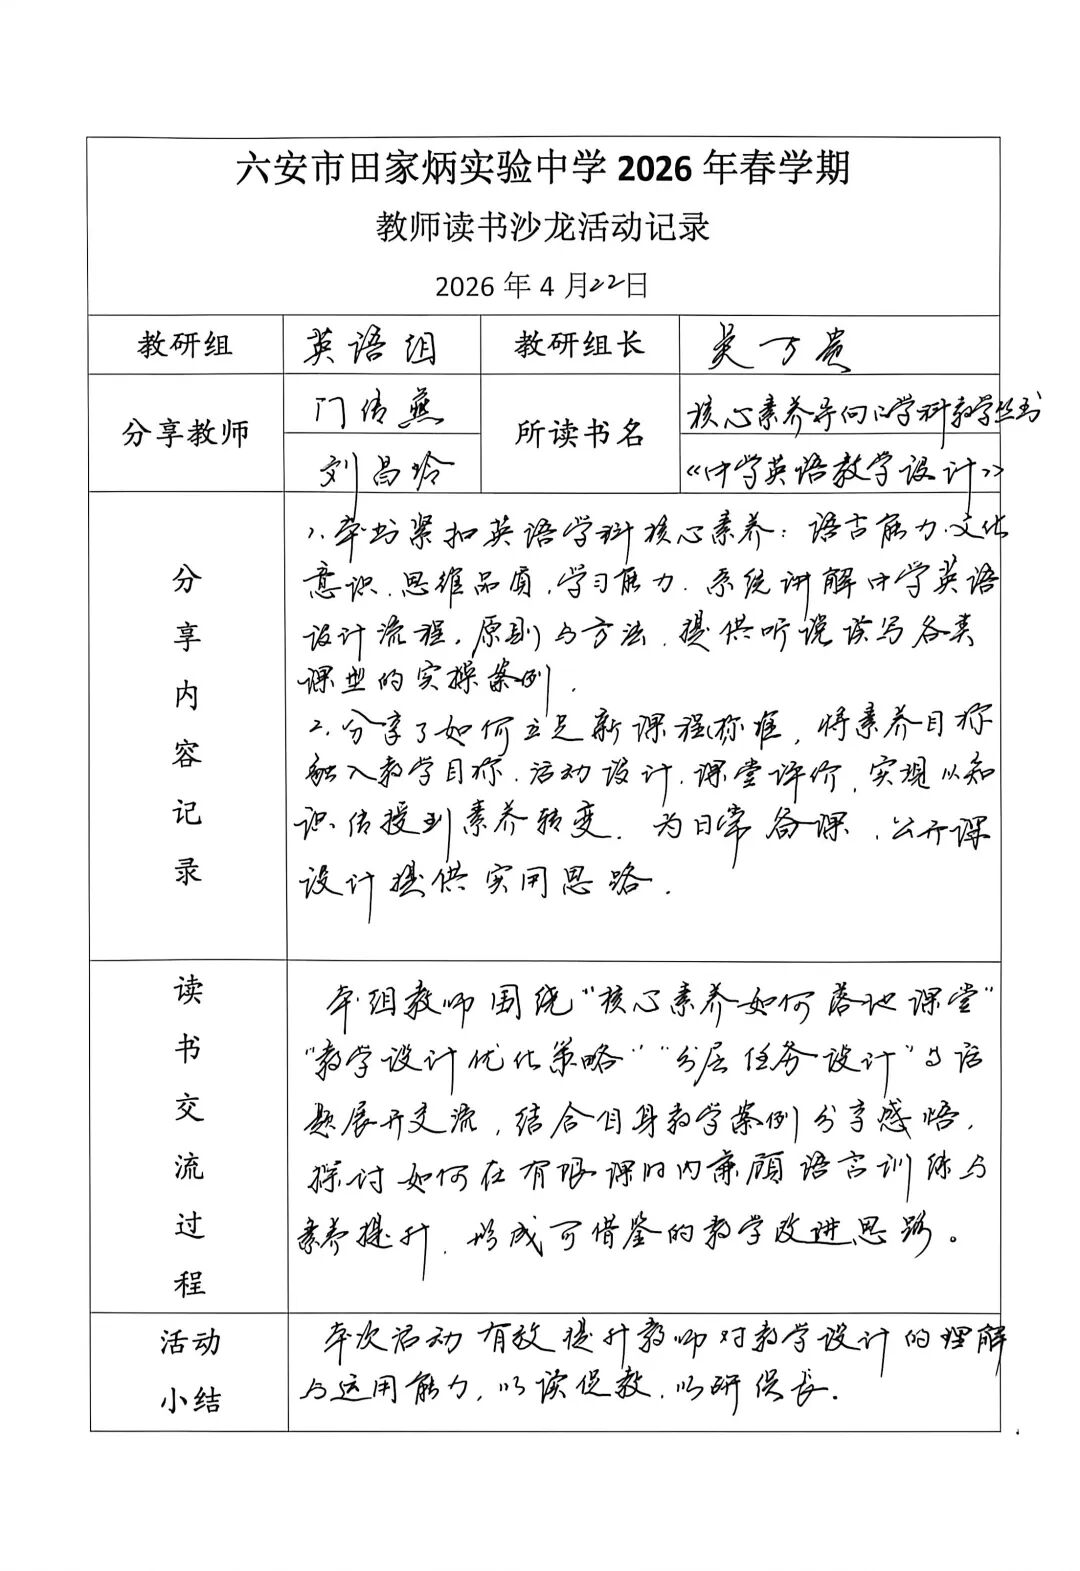 六安市田家炳实验中学 2026 年春学期
教师读书沙龙活动记录
2026 年 4 月22日
教研组 英语组 教研组长 吴万贵
分享教师 门传燕 所读书名 核心素养导向的学科教学丛书
刘昌玲 《中学英语教学设计》
分享内容记录
1. 本书紧扣英语学科核心素养：语言能力、文化
意识、思维品质、学习能力. 系统讲解中学英语
设计流程、原则与方法. 提供听说读写各类
课型的实操案例.
2. 分享了如何立足新课程标准, 将素养目标
融入教学目标、活动设计、课堂评价, 实现从知
识传授到素养转变. 为日常备课、公开课
设计提供实用思路.
读书交流过程
本组教师围绕“核心素养如何落地课堂”
“教学设计优化策略”“分层任务设计”等话
题展开交流, 结合自身教学案例分享感悟,
探讨如何在有限课时内兼顾语言训练与
素养提升, 形成可借鉴的教学改进思路。
活动小结
本次活动有效提升教师对教学设计的理解
与运用能力, 以读促教, 以研促长.